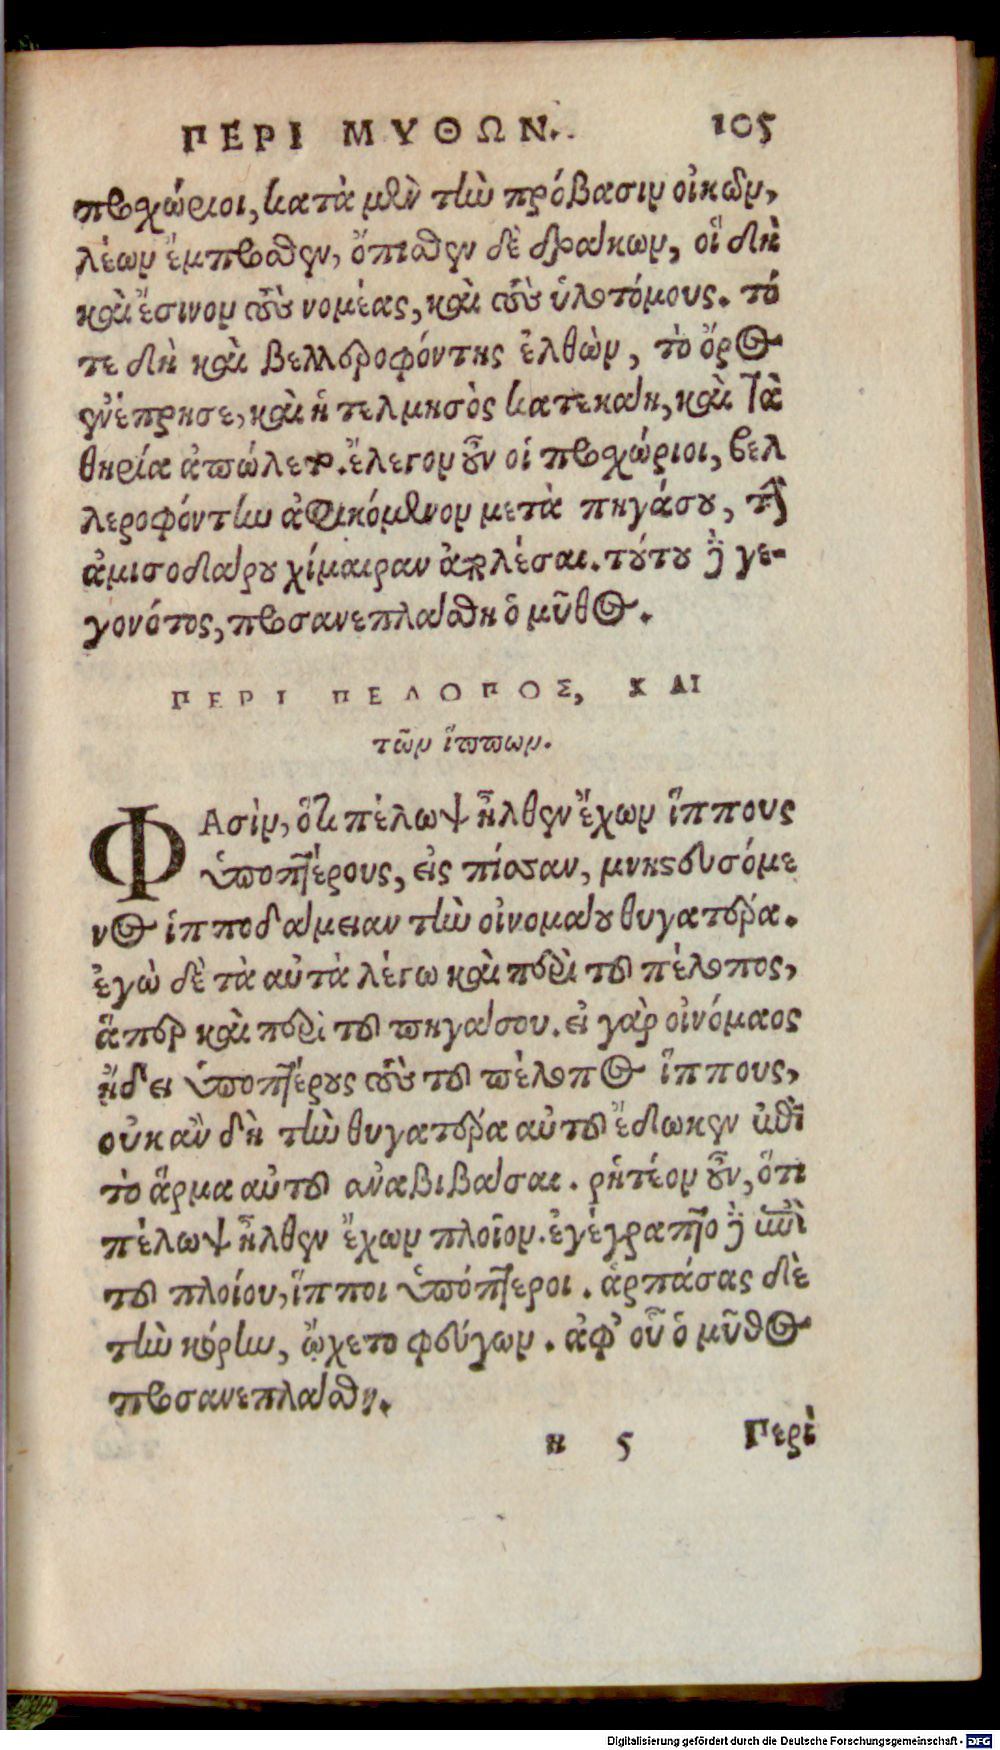 ΠΕΡΙ ΜΥΘΩΝ. 105
προχώριοι, κατὰ μὲν τὴν πρόβασιν οἰκῶν,
λέων ἔμπροσθεν, ὄπισθεν δὲ δράκων, οἳ δὴ
καὶ ἔσινον τοὺς νομέας, καὶ τοὺς ὑλοτόμους. τό
τε δὴ καὶ βελλεροφόντης ἐλθὼν, τὸ ὄρος
ἐνέπρησε, καὶ ἡ τελμησὸς κατεκάη, καὶ τὰ
θηρία ἀπώλετο. ἔλεγον οὖν οἱ προχώριοι, βελ
λεροφόντην ἀφικόμενον μετὰ πηγάσου, τὴν
ἀμισοδάρου χίμαιραν ἀπολέσαι. τούτου δὲ γε-
γονότος, προσανεπλάσθη ὁ μῦθος.
ΠΕΡΙ ΠΕΛΟΠΟΣ, ΚΑΙ
τῶν ἵππων.
ΦΑσὶν, ὅτι πέλοψ ἦλθεν ἔχων ἵππους
ὑποπτέρους, εἰς πίσσαν, μνηστευσόμε
νος ἱπποδάμειαν τὴν οἰνομάου θυγατέρα.
ἐγὼ δὲ τὰ αὐτὰ λέγω καὶ περὶ τοῦ πέλοπος,
ἅπερ καὶ περὶ τοῦ πηγάσου. εἰ γὰρ οἰνόμαος
ᾔδει ὑποπτέρους τοὺς τοῦ πέλοπος ἵππους,
οὐκ ἂν δὴ τὴν θυγατέρα αὐτοῦ ἔδωκεν ἐπὶ
τὸ ἅρμα αὐτοῦ ἀναβιβάσαι. ῥητέον οὖν, ὅτι
πέλωψ ἦλθεν ἔχων πλοῖον. ἐγέγραπτο δὲ ἐπὶ
τοῦ πλοίου, ἵπποι ὑπόπτεροι. ἁρπάσας δὲ
τὴν κόρην, ᾤχετο φεύγων. ἀφ' οὗ ὁ μῦθος
προσανεπλάσθη.
η 5 Περὶ
Digitalisierung gefördert durch die Deutsche Forschungsgemeinschaft - DFG